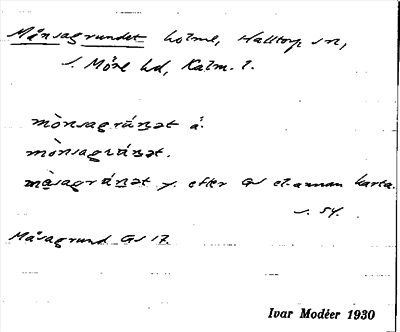 Månsagrundet holme, Halltorp sn,
s. Möre hd, Kalm. l.
mònsagrúnət å.
mònsagrúnət.
måsagrúnət y. efter GS et annan karta.
s. 54.
Måsagrund GS 17.
Ivar Modéer 1930